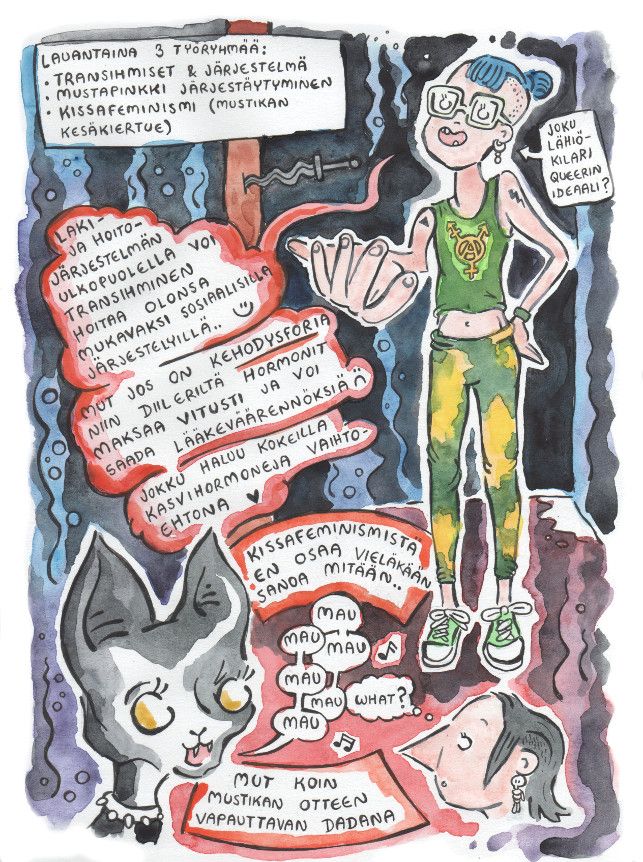 LAUANTAINA 3 TYÖRYHMÄÄ:
· TRANSIHMISET & JÄRJESTELMÄ
· MUSTAPINKKI JÄRJESTÄYTYMINEN
· KISSAFEMINISMI (MUSTIKAN
KESÄKIERTUE)
JOKU
LÄHIÖ-
KILARI
QUEERIN
IDEAALI?
LAKI-
JA HOITO-
JÄRJESTELMÄN
ULKOPUOLELLA VOI
TRANSIHMINEN
HOITAA OLONSA
MUKAVAKSI SOSIAALISILLA
JÄRJESTELYILLÄ..
MUT JOS ON KEHODYSFORIA
NIIN DIILERILTÄ HORMONIT
MAKSAA VITUSTI JA VOI
SAADA LÄÄKEVÄÄRENNÖKSIÄ
JOKKU HALUU KOKEILLA
KASVIHORMONEJA VAIHTO-
EHTONA
KISSAFEMINISMISTÄ
EN OSAA VIELÄKÄÄN
SANOA MITÄÄN..
MAU
MAU
MAU
MAU
MAU
MAU
WHAT?
MUT KOIN
MUSTIKAN OTTEEN
VAPAUTTAVAN DADANA